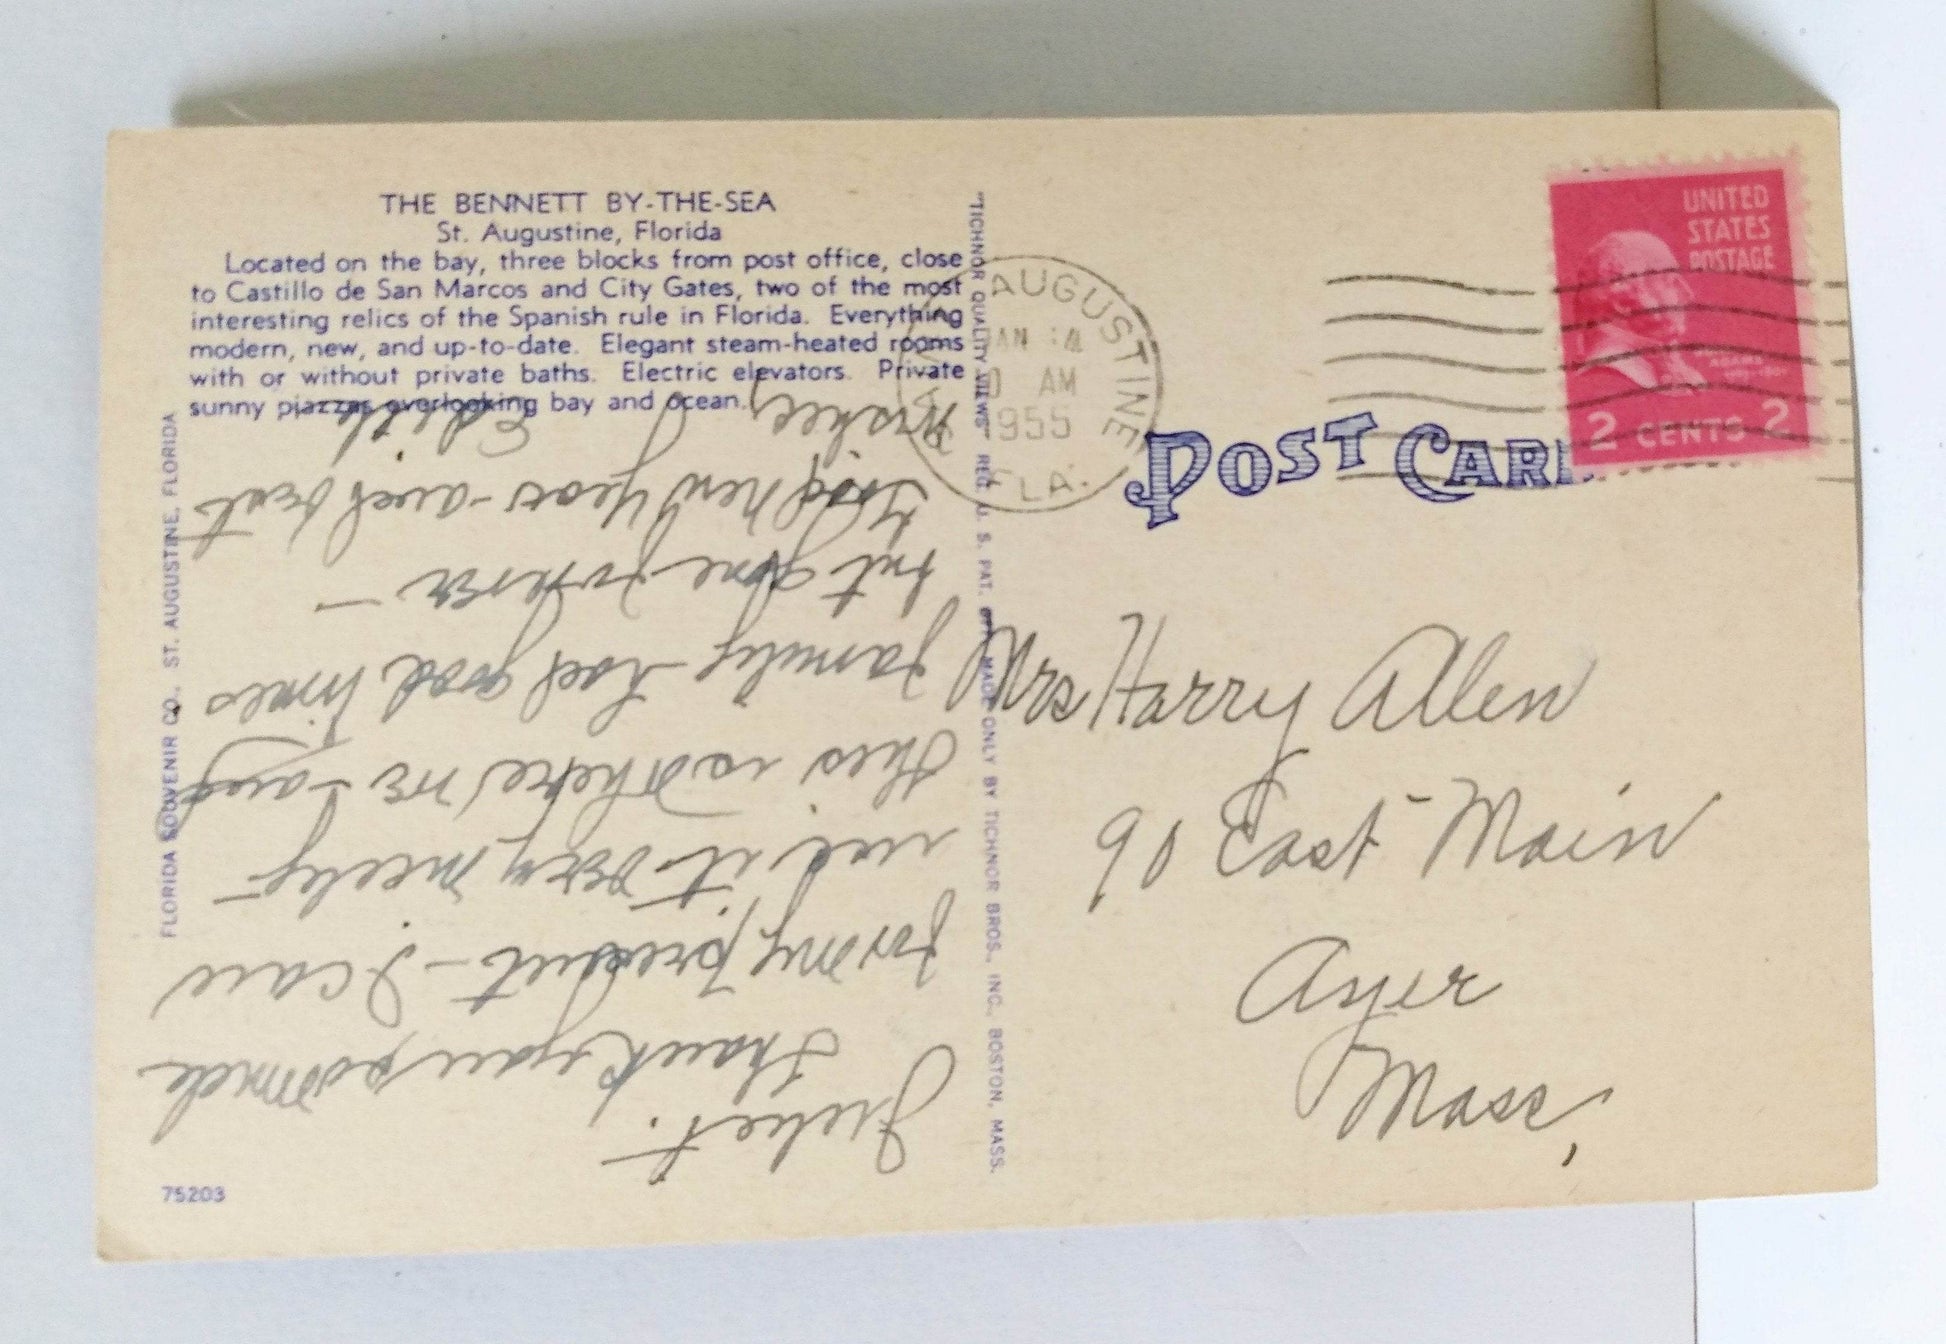 THE BENNETT BY-THE-SEA
St. Augustine, Florida
Located on the bay, three blocks from post office, close
to Castillo de San Marcos and City Gates, two of the most
interesting relics of the Spanish rule in Florida. Everything
modern, new, and up-to-date. Elegant steam-heated rooms
with or without private baths. Electric elevators. Private
sunny piazzas overlooking bay and ocean.
Thank you so much
for my present - I can
use it very nicely -
this is where we - and
family - had good times
but gone forever -
Good new year - and best
wishes,
Edith
FLORIDA SOUVENIR CO., ST. AUGUSTINE, FLORIDA
75203
"TICHNOR QUALITY VIEWS" REG. U. S. PAT. OFF. MADE ONLY BY TICHNOR BROS., INC., BOSTON, MASS.
AUGUSTINE
AM
1955
FLA.
UNITED
STATES
POSTAGE
2 CENTS 2
POST CARD
Mrs Harry Allen
90 East Main
Ayer
Mass.